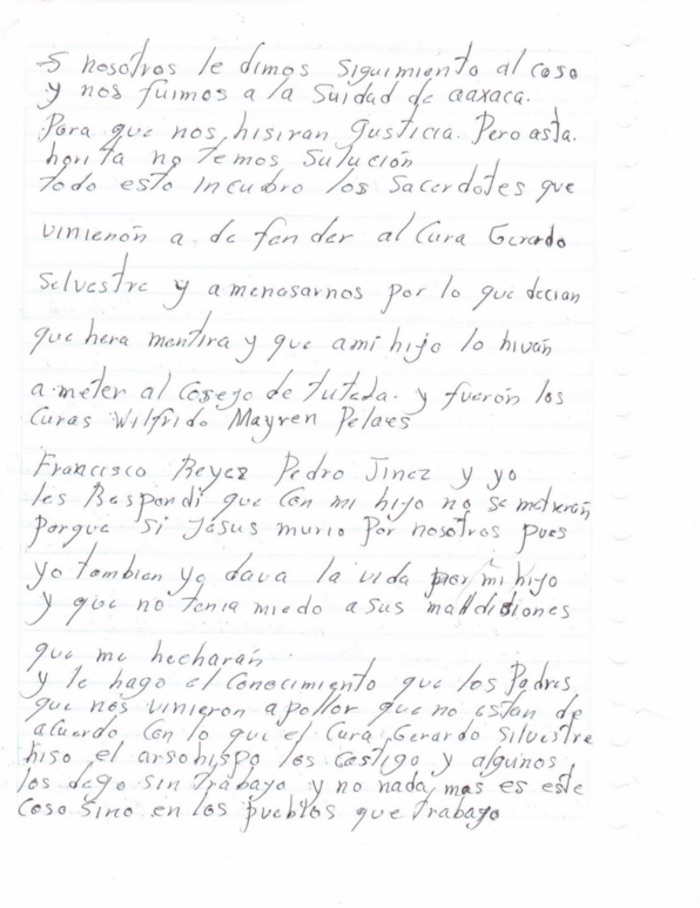 5 nosotros le dimos siguimiento al caso
y nos fuimos a la Suidad de oaxaca.
Para que nos hisiran Justicia. Pero asta.
horita no temos Sulución
todo esto incubro los Sacerdotes que
vinienón a de fen der al Cura Gerardo
Selvestre y amenasarnos por lo que decian
que hera mentira y que ami hijo lo hivan
a meter al Cosejo de tutada. y fuerón los
Curas Wilfrido Mayren Pelaes
Francisco Reyez Pedro Jinez y yo
les Respondi que con mi hijo no se metieran
Porque si Jesus murio Por nosotros pues
yo tombien yo dava la vida por mi hijo
y que no tenia miedo a sus malldisiones
que me hecharán
y le hago el conocimiento que los Padres
que nos vinieron apollor que no estan de
acuerdo con lo que el Cura Gerardo Silvestre
hiso el arsohispo los castigo y algunos
los dego sin trabajo y no nada mas es este
Caso sino en los pueblos que trabajo